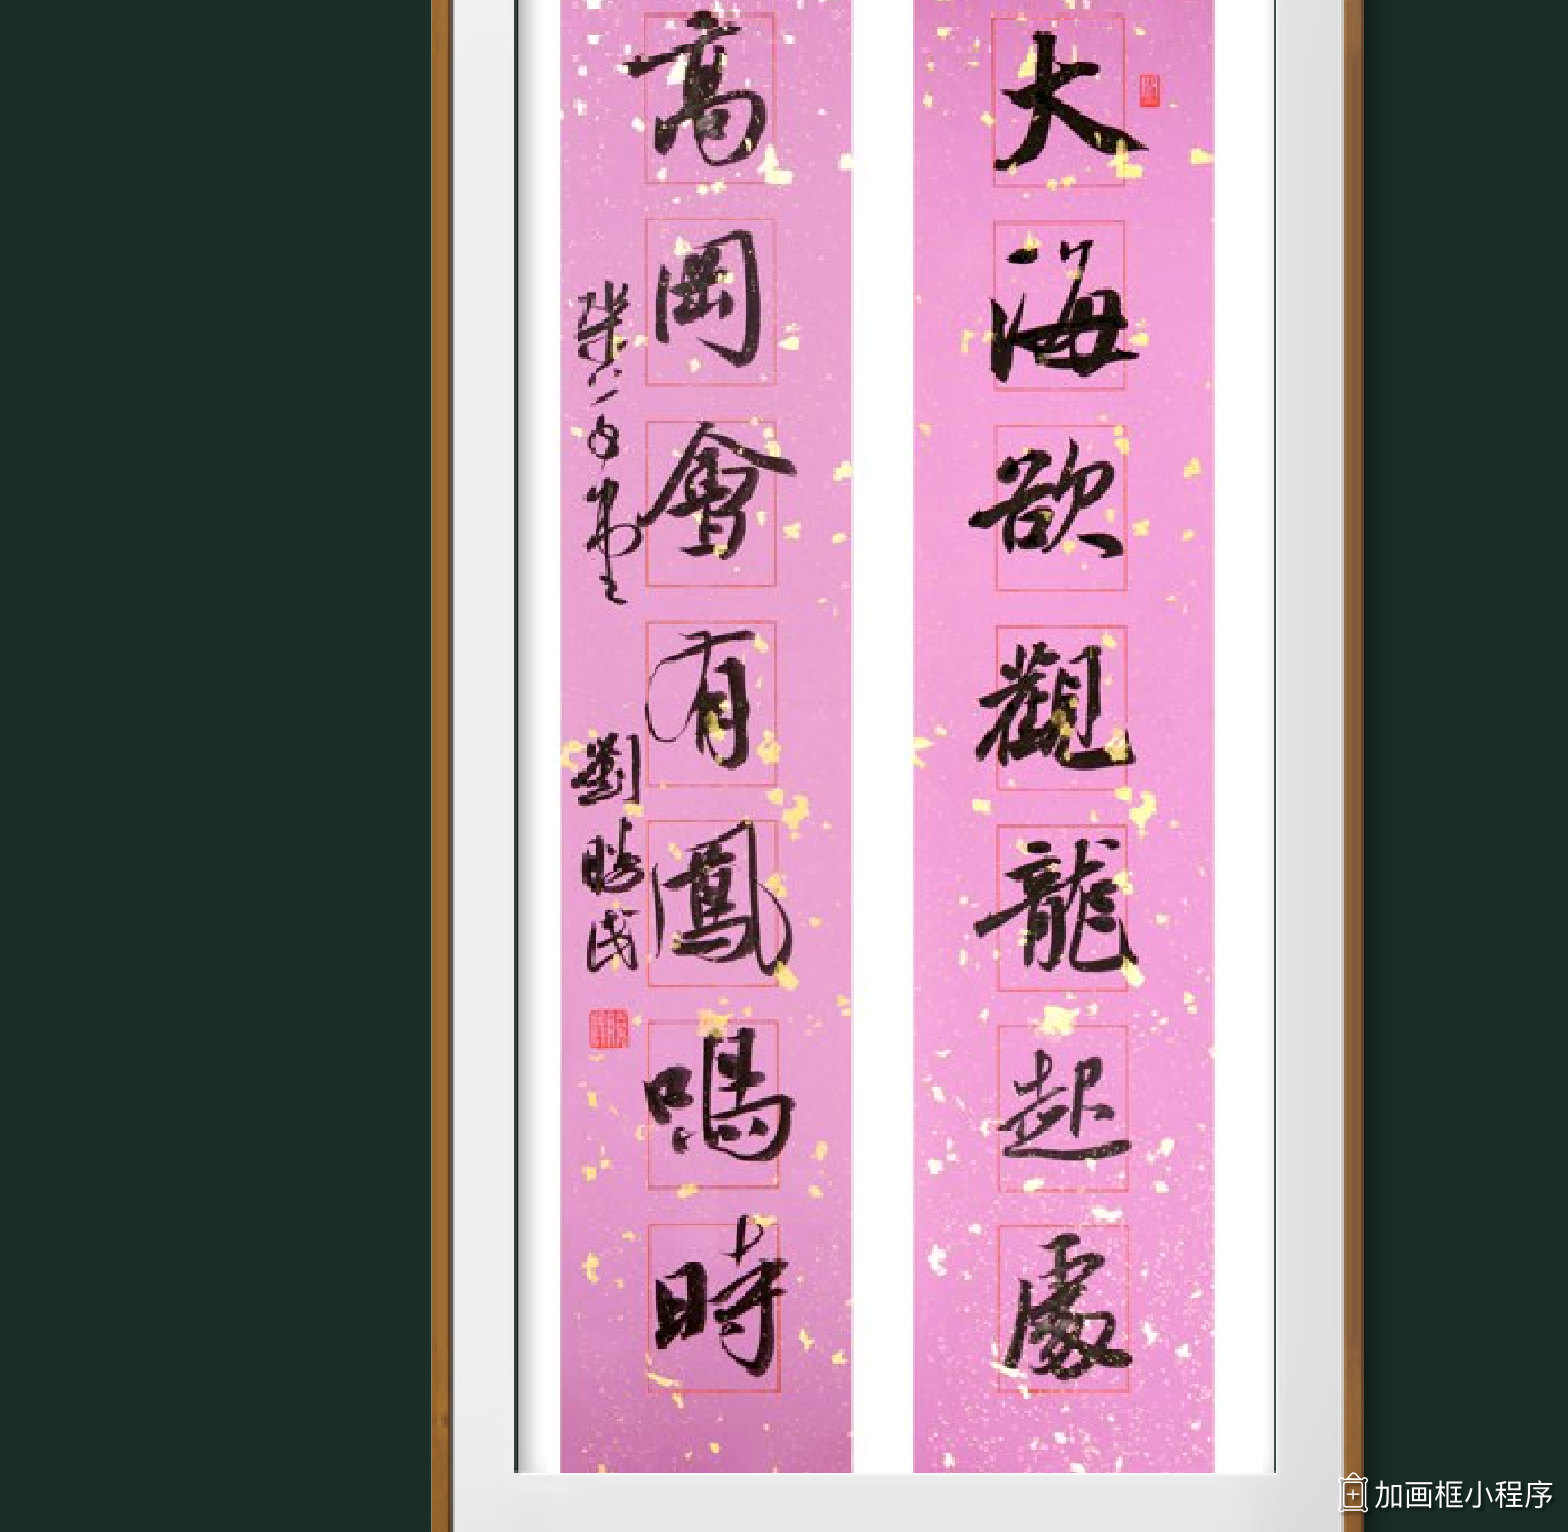 大海欲觀龍起處
高岡會有鳳鳴時
劉勝民
加画框小程序